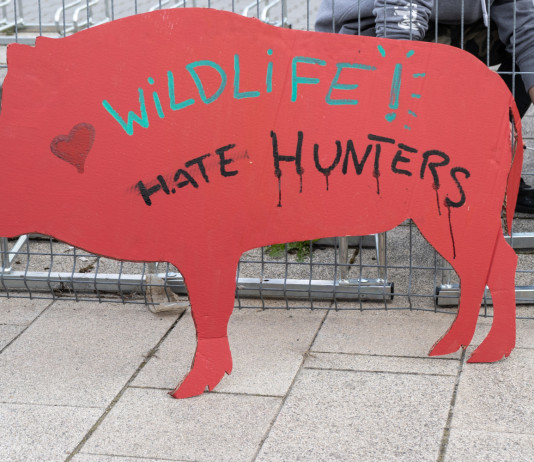 WiLDLiFE!
HATE HUNTERS